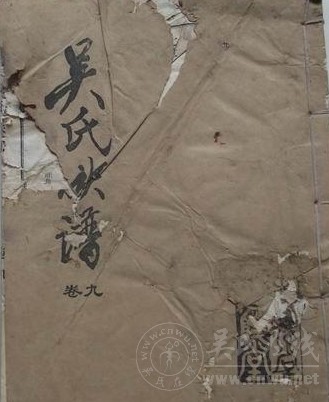 吴氏族譜
卷九
www.cnwu.net
吴氏在线
www.cnwu.net